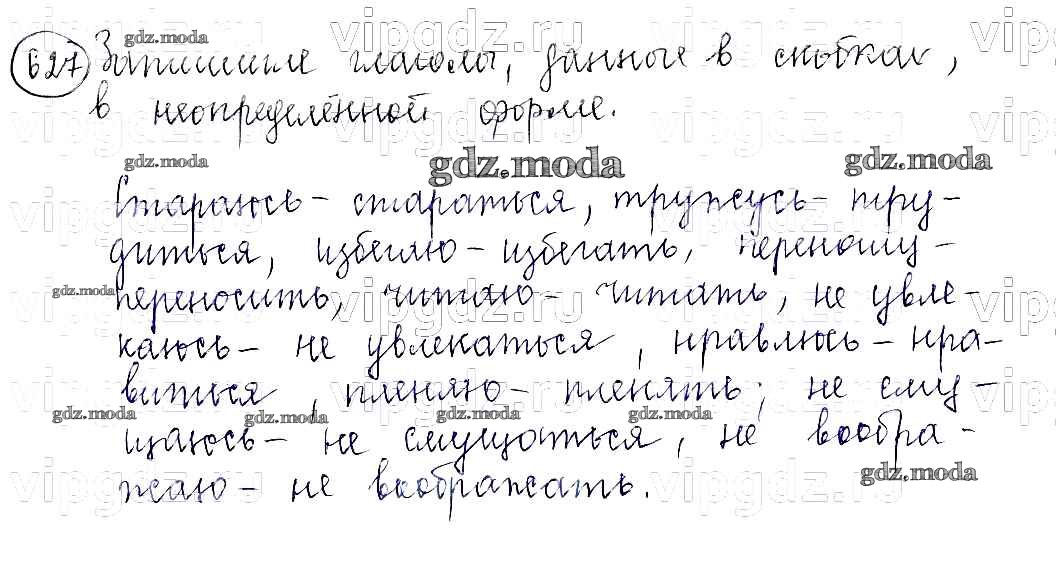 627 Запишите глаголы, данные в скобках,
в неопределённой форме.
Стараюсь – стараться, тружусь – тру-
диться, избегаю – избегать, переношу –
переносить, читаю – читать, не увле-
каюсь – не увлекаться, нравлюсь – нра-
виться, пленяю – пленять, не сму-
щаюсь – не смущаться, не вообра-
жаю – не воображать.
gdz.moda
vipgdz.ru